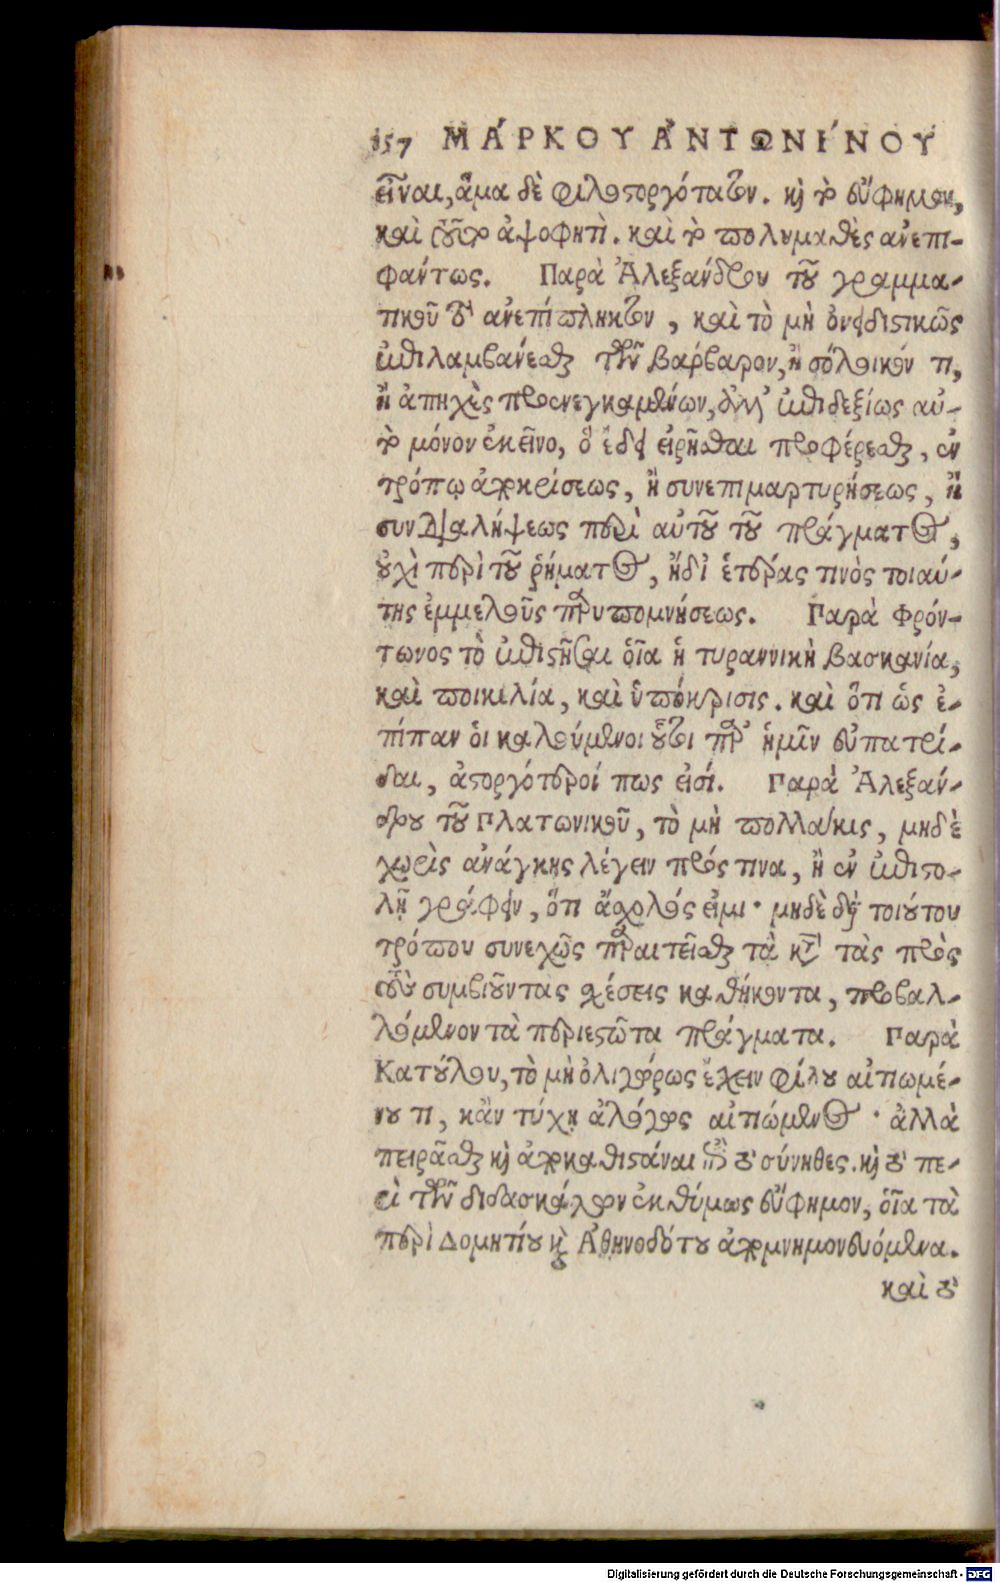 157 ΜΑ΄ΡΚΟΥ ἈΝΤΩΝΙ΄ΝΟΥ
εἶναι, ἅμα δὲ φιλοστοργότατον. καὶ τὸ εὔφημον,
καὶ τοῦτο ἀψοφητὶ. καὶ τὸ πολυμαθὲς ἀνεπι-
φάντως. Παρὰ Ἀλεξάνδρου τοῦ γραμμα-
τικοῦ τὸ ἀνεπίπληκτον, καὶ τὸ μὴ ὀνειδιστικῶς
ἐπιλαμβάνεσθαι τῶν βάρβαρον, ἢ σόλοικόν τι,
ἢ ἀπηχὲς προσενεγκαμένων, ἀλλ' ἐπιδεξίως αὐ-
τὸ μόνον ἐκεῖνο, ὃ ἔδει εἰρῆσθαι προφέρεσθαι, ἐν
τρόπῳ ἀποκρίσεως, ἢ συνεπιμαρτυρήσεως, ἢ
συνδιαλήψεως περὶ αὐτοῦ τοῦ πράγματος,
οὐχὶ περὶ τοῦ ῥήματος, ἢ δι' ἑτέρας τινὸς τοιαύ-
της ἐμμελοῦς παρυπομνήσεως. Παρὰ Φρόν-
τωνος τὸ ἐπιστῆσαι οἵα ἡ τυραννικὴ βασκανία,
καὶ ποικιλία, καὶ ὑπόκρισις. καὶ ὅτι ὡς ἐ-
πίπαν οἱ καλούμενοι οὗτοι παρ' ἡμῖν εὐπατρί-
δαι, ἀστοργότεροί πως εἰσί. Παρὰ Ἀλεξάν-
δρου τοῦ Πλατωνικοῦ, τὸ μὴ πολλάκις, μηδὲ
χωρὶς ἀνάγκης λέγειν πρός τινα, ἢ ἐν ἐπιστο-
λῇ γράφειν, ὅτι ἄσχολός εἰμι· μηδὲ διὰ τοιούτου
τρόπου συνεχῶς παραιτεῖσθαι τὰ κατὰ τὰς πρὸς
τοὺς συμβιοῦντας σχέσεις καθήκοντα, προβαλ-
λόμενον τὰ περιεστῶτα πράγματα. Παρὰ
Κατούλου, τὸ μὴ ὀλιγώρως ἔχειν φίλου αἰτιωμέ-
νου τι, κἂν τύχῃ ἀλόγως αἰτιώμενος· ἀλλὰ
πειρᾶσθαι καὶ ἀποκαθιστάναι ἐπὶ τὸ σύνηθες. καὶ τὸ πε-
ρὶ τῶν διδασκάλων ἐκθύμως εὔφημον, οἷα τὰ
περὶ Δομητίου καὶ Ἀθηνοδότου ἀπομνημονευόμενα.
καὶ τὸ
Digitalisierung gefördert durch die Deutsche Forschungsgemeinschaft - DFG